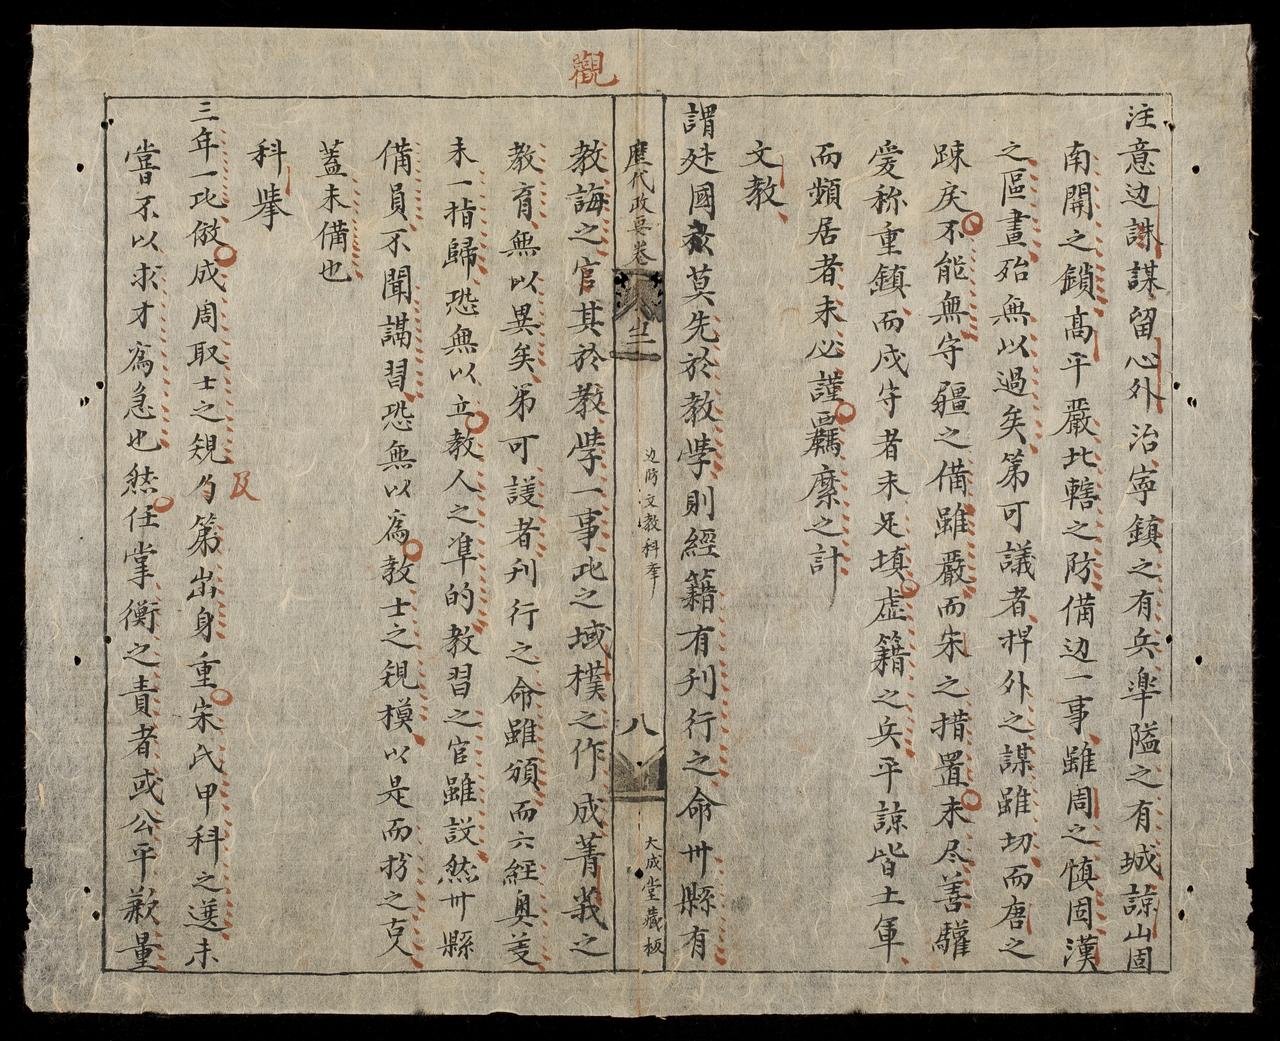 觀
注意边諌謀留心外治寜鎮之有兵率隘之有城諒山固
南開之鎖高平嚴北轄之防備边一事雖周之慎固漢
之區畫殆無以過矣第可議者捍外之謀雖切而唐之
踈戾不能無守疆之備雖嚴而宋之措置未尽善驩
爱称重鎮而戍守者未足填虚籍之兵平諒皆土軍
而頻居者未必謹羈縻之計
文教
謂国莫先於教學則經籍有刊行之命卅縣有
歷代政要卷
边防文教科挙
八
大成堂藏板
教誨之官其於教學一事比之域樸之作成菁莪之
教育無以異矣第可議者刋行之命雖頒而六經奥㫖
未一指歸恐無以立教人之凖的教習之官雖設然卅縣
備員不聞講習恐無以為教士之規模以是而扵之古人
蓋未備也
科挙
三年一比倣成周取士之規及第出身重宋氏甲科之選未
嘗曰不以求才為急也然任掌衡之責者或公平歉量